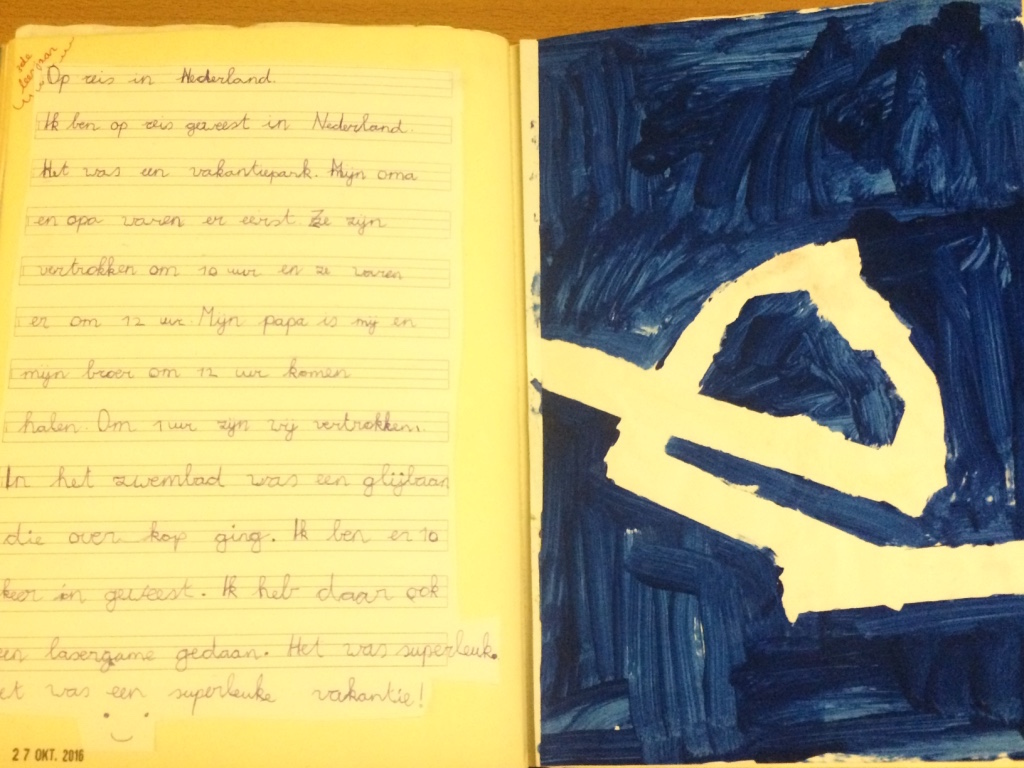 leerjaar
Op reis in Nederland.
Ik ben op reis geweest in Nederland.
Het was een vakantiepark. Mijn oma
en opa waren er eerst. Ze zijn
vertrokken om 10 uur en ze waren
er om 12 uur. Mijn papa is mij en
mijn broer om 12 uur komen
halen. Om 1 uur zijn wij vertrokken.
In het zwembad was een glijbaan
die over kop ging. Ik ben er 10
keer in geweest. Ik heb daar ook
een lasergame gedaan. Het was superleuk.
et was een superleuke vakantie!
27 OKT. 2016